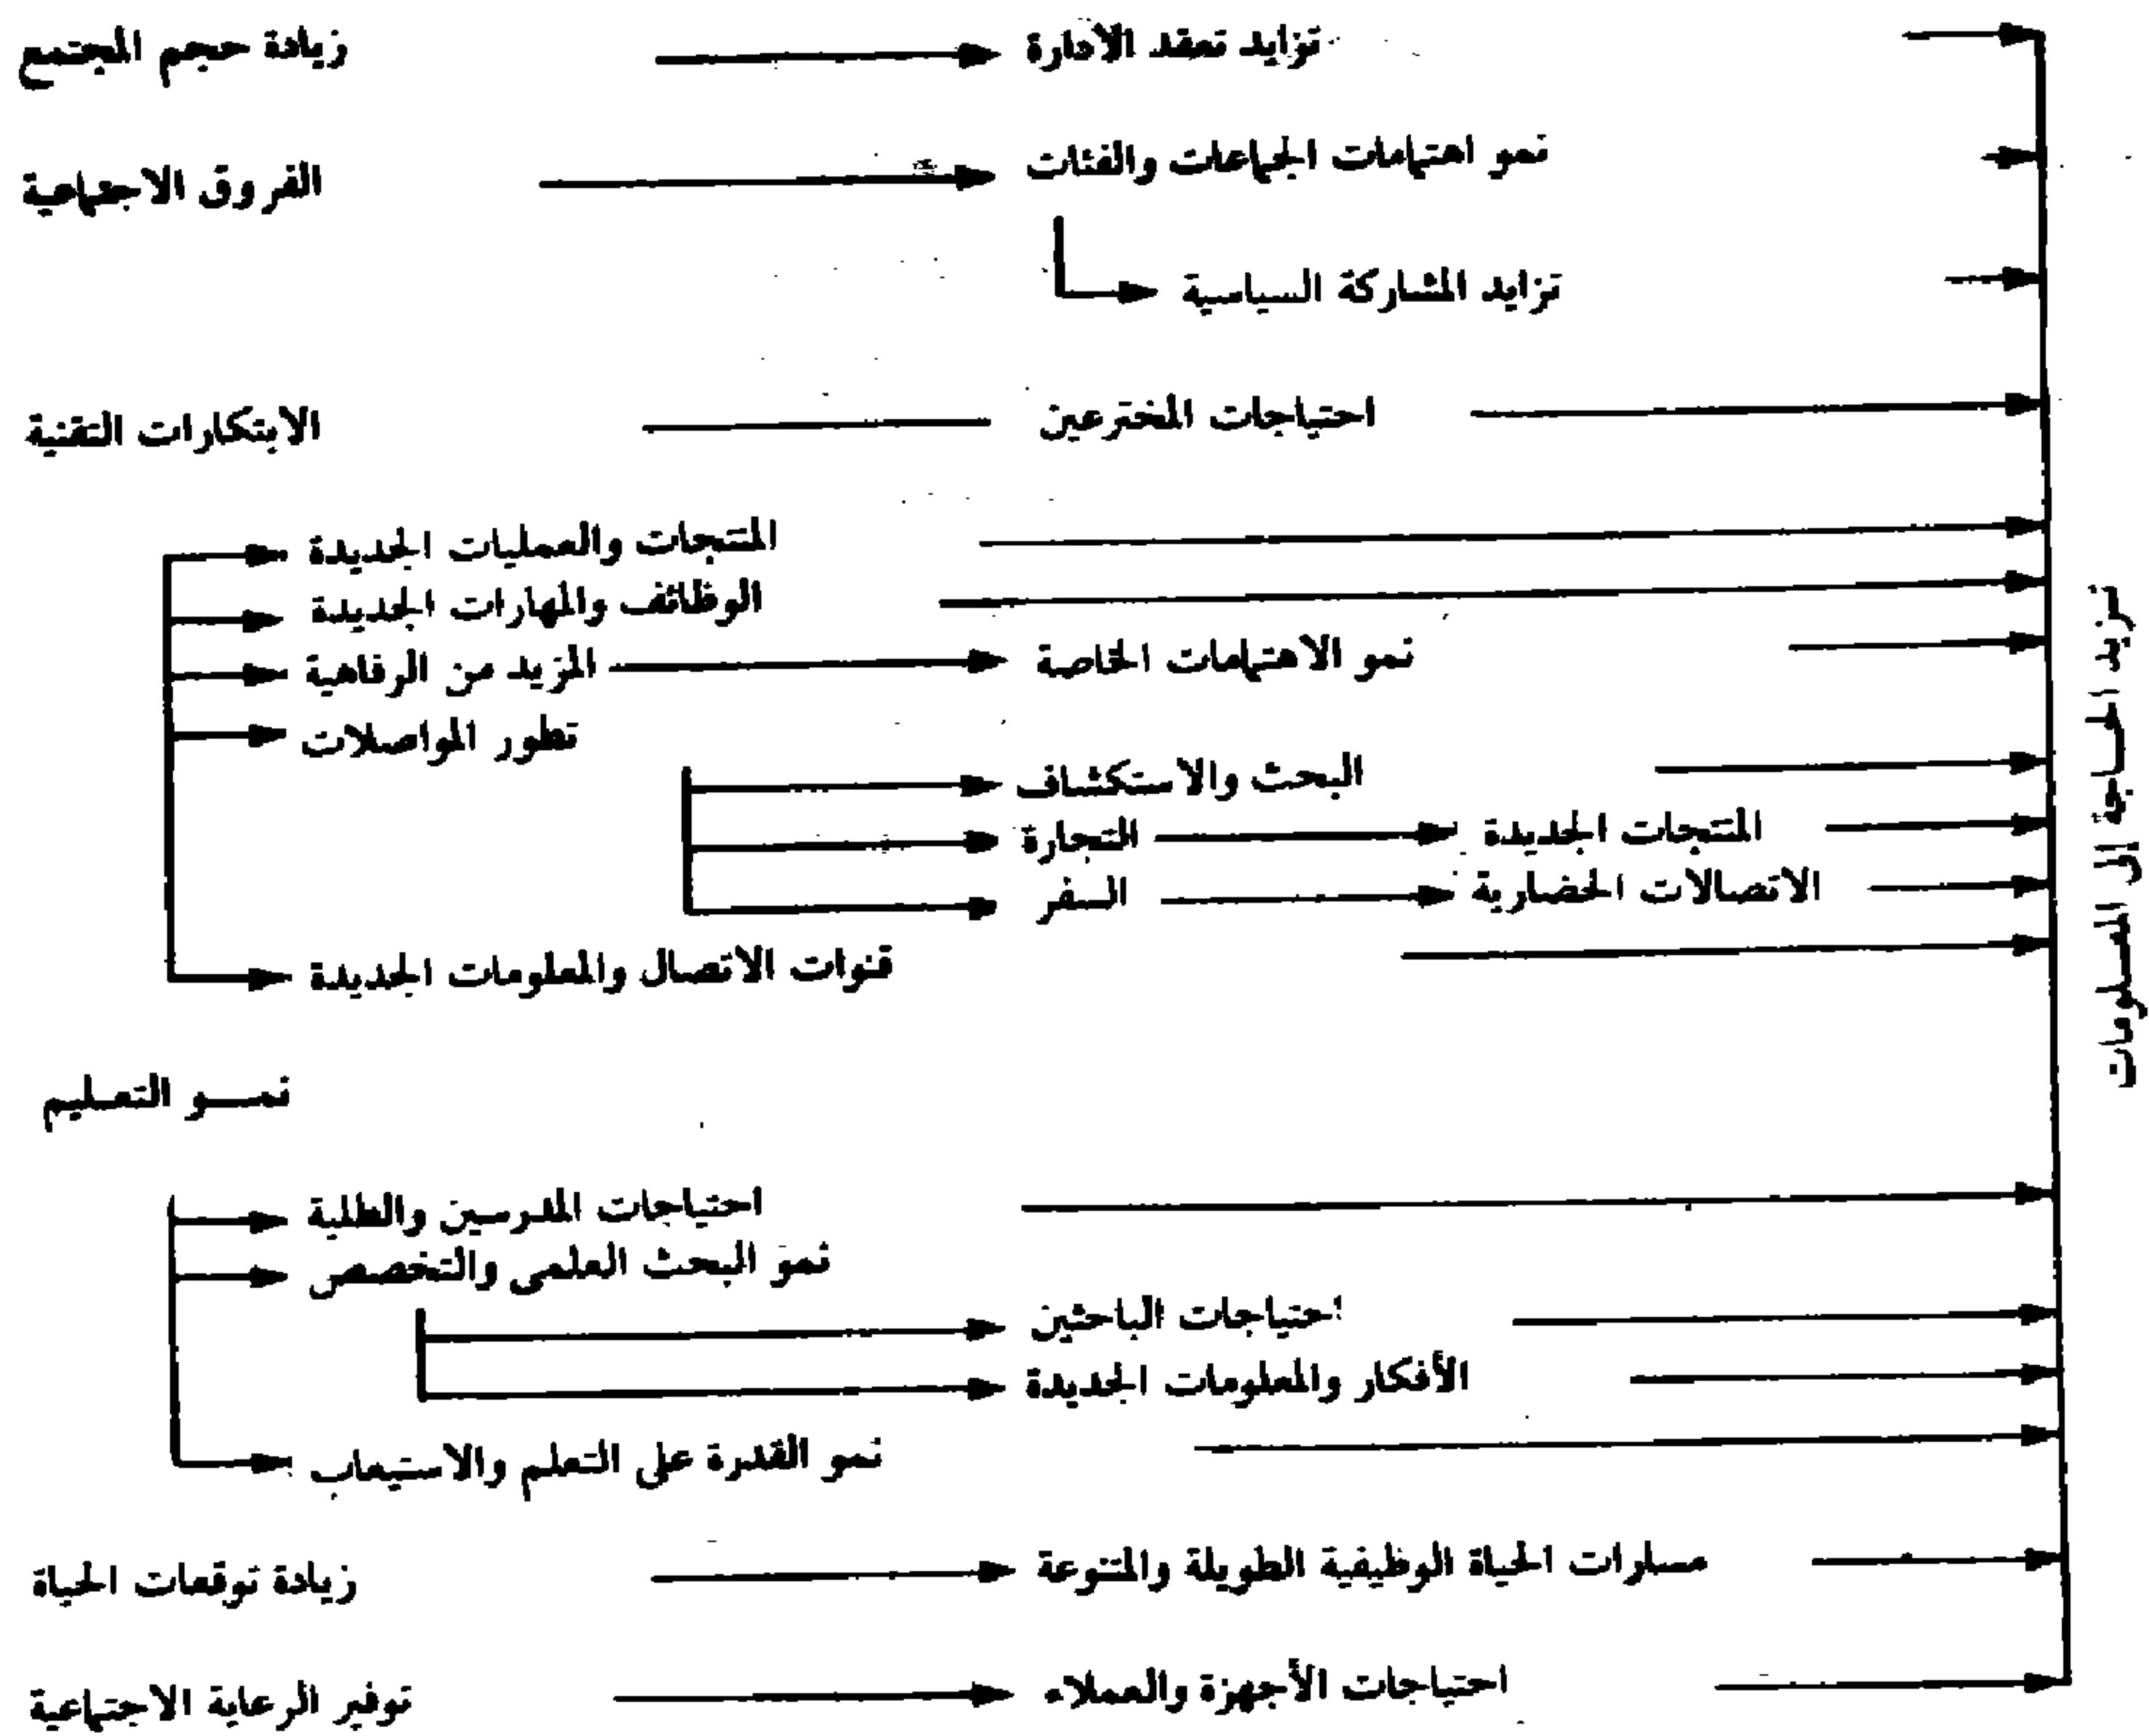 زيادة حجم المجتمع
تزايد تعقد الادارة
الفروق الاجتماعية
نمو اهتمامات الجماعات والفئات
تزايد المشاركة السياسية
الابتكارات التقنية
احتياجات المخترعين
المنتجات والعمليات الجديدة
الوظائف والمهارات الجديدة
المزيد من الرفاهية
نمو الاهتمامات الخاصة
تطور المواصلات
البحث والاستكشاف
التجارة
المنتجات الجديدة
السفر
الاتصالات الحضارية
قنوات الاتصال والمعلومات الجديدة
نمـــو التعـليم
احتياجات المدرسين والطلبة
نمو البحث العلمى والتخصص
احتياجات الباحثين
الأفكار والمعلومات الجديدة
نمو القدرة على التعلم والاستيعاب
زيادة توقعات الحياة
مسارات الحياة الوظيفية الطويلة والمتنوعة
توفير الرعاية الاجتماعية
احتياجات الأجهزة والعملاء
تزايد الحاجة الى المعلومات